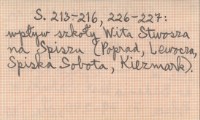 S. 213-216, 226-227:
wpływ szkoły Wita Stwosza
na Spiszu (Poprad, Lewocza,
Spiska Sobota, Kiezmark).